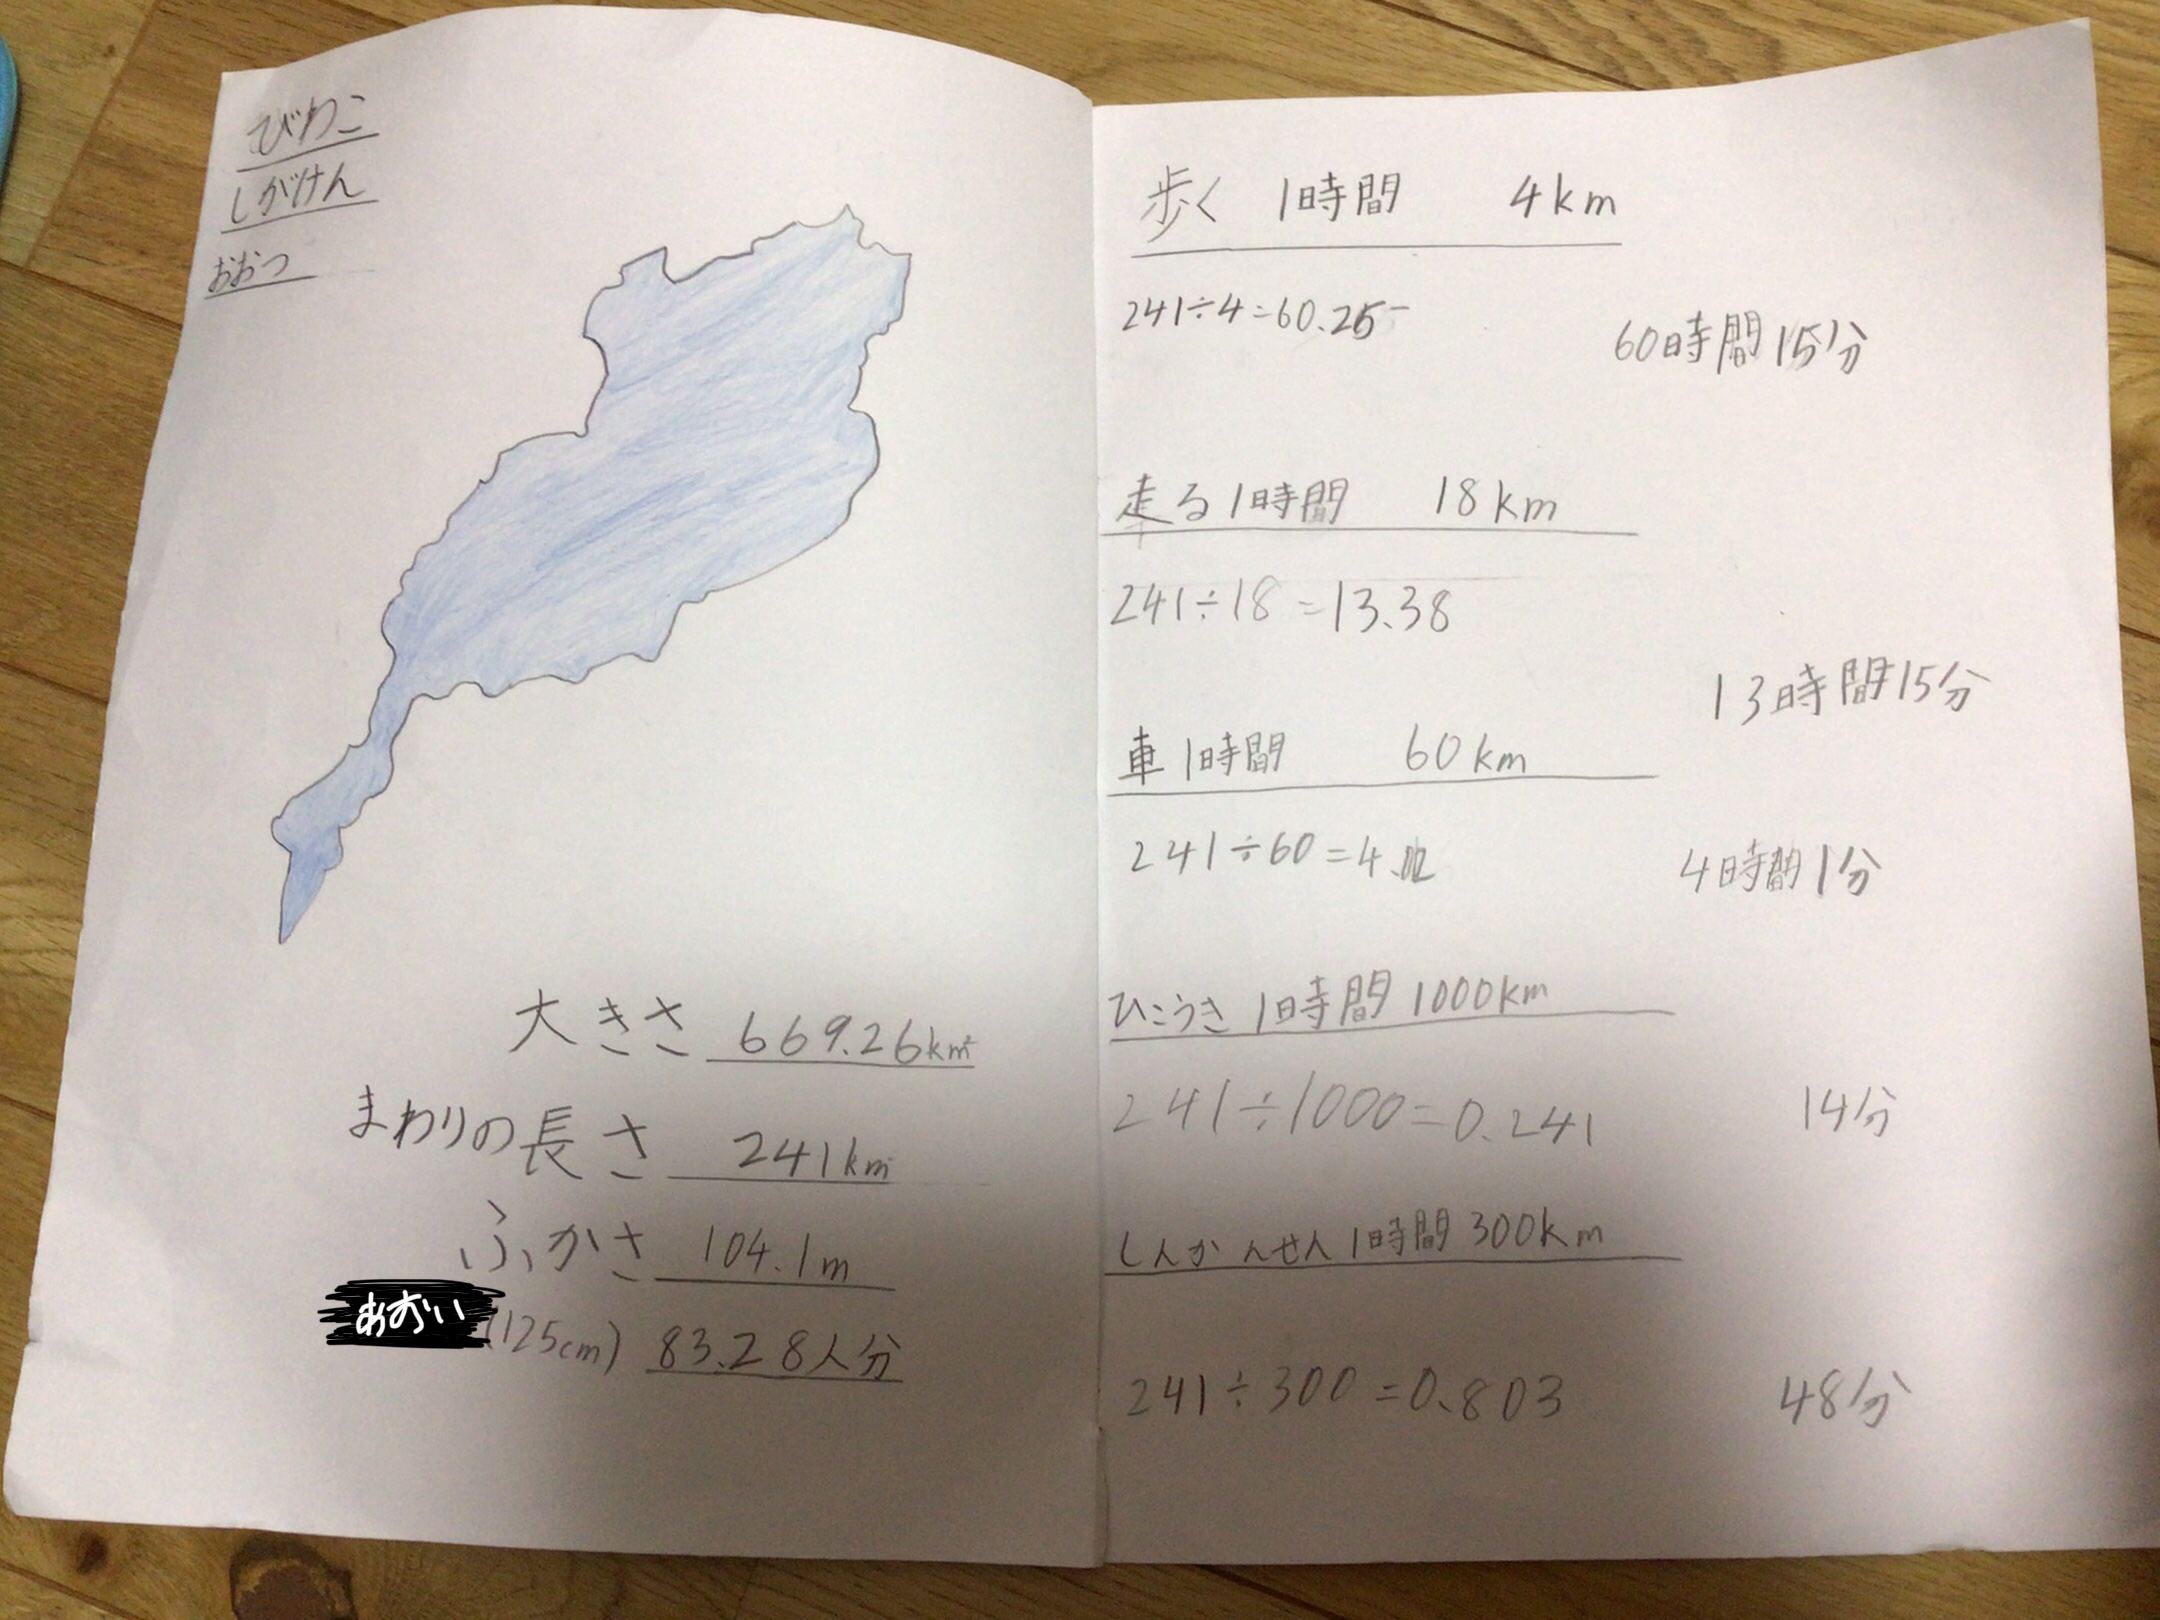 びわこ
しがけん
おおつ
大きさ 669.26km²
まわりの長さ 241km
ふかさ 104.1m
あおい(125cm) 83.28人分
歩く 1時間 4km
241÷4=60.25
60時間15分
走る1時間 18km
241÷18=13.38
13時間15分
車1時間 60km
241÷60=4.
4時間1分
ひこうき 1時間 1000km
241÷1000=0.241
14分
しんかんせん1時間 300km
241÷300=0.803
48分